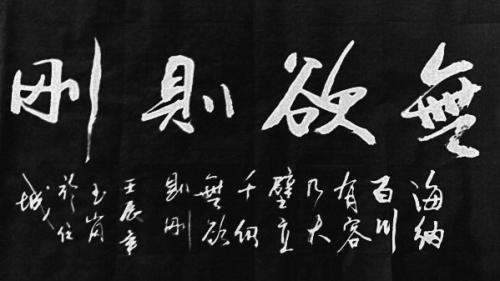 無欲則剛
海納
百川
有容
乃大
壁立
千仞
無欲
則剛
壬辰
玉
於任
城